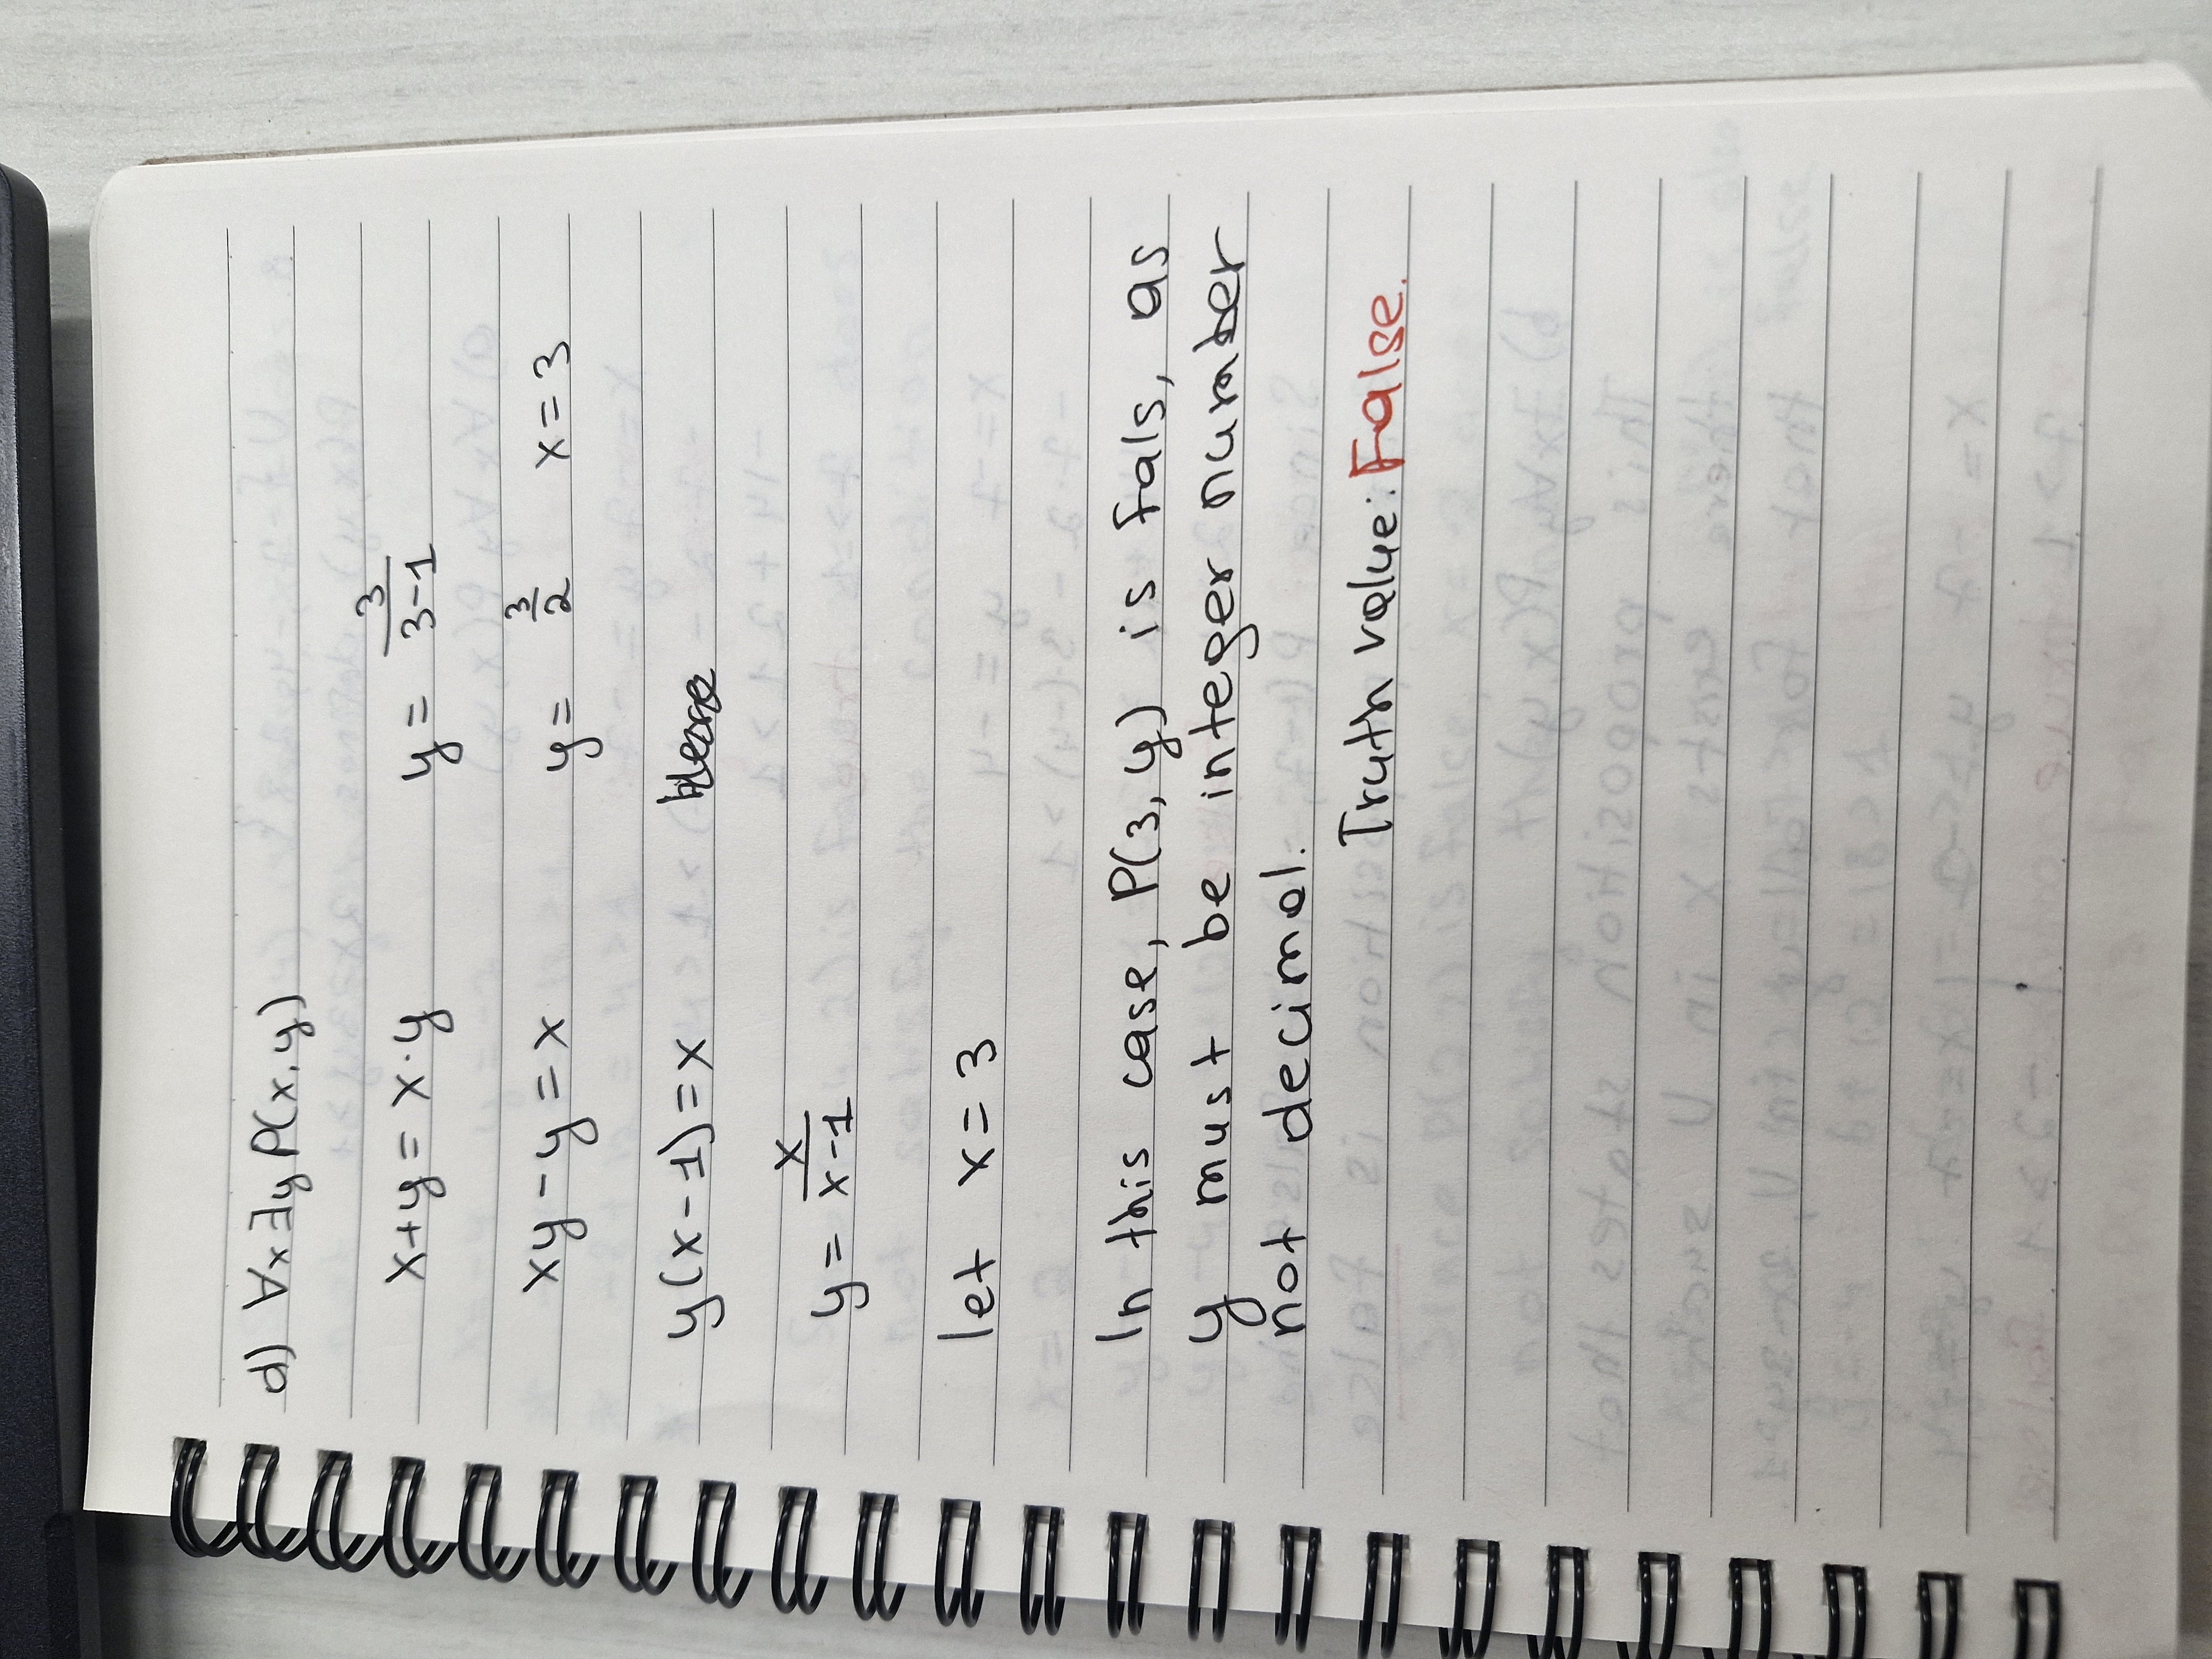 d) ∀x∃y P(x,y)
x+y = x·y
xy-y = x
y(x-1) = x
y = x/(x-1)
let x = 3
y = 3/(3-1)
y = 3/2 x = 3
In this case, P(3,y) is fals, as
y must be integer number
not decimal.
Truth value: False.